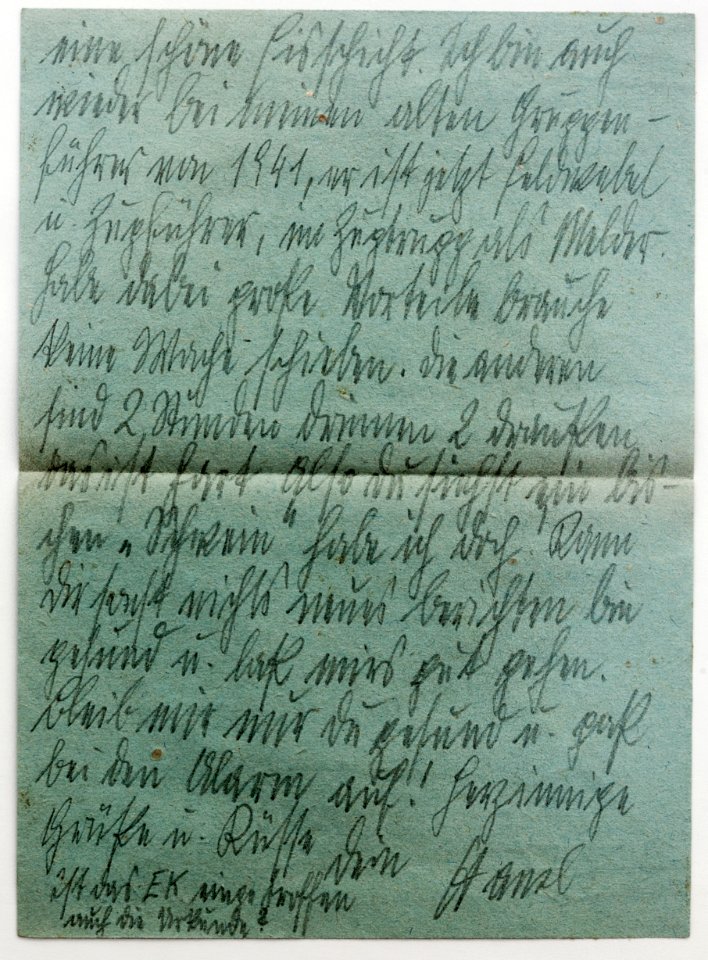 eine schöne Eisschicht. Ich bin auch
wieder bei meinen alten Gruppen-
führer von 1941, er ist jetzt Feldwebel
u. Zugführer, im Zugtrupp als Melder.
Habe dabei große Vorteile brauche
keine Wache schieben. Die anderen
sind 2 Stunden drinnen 2 draußen
das ist hart. Also du siehst ein bis-
chen „Schwein“ habe ich doch. Kann
dir sonst nichts neues berichten bin
gesund u. laß mirs gut gehen.
Bleib mir nur du gesund u. paß
bei den Alarm auf! Herzinnige
Grüße u. Küsse dein
ist das EK eingetroffen
auch die Urkunde?